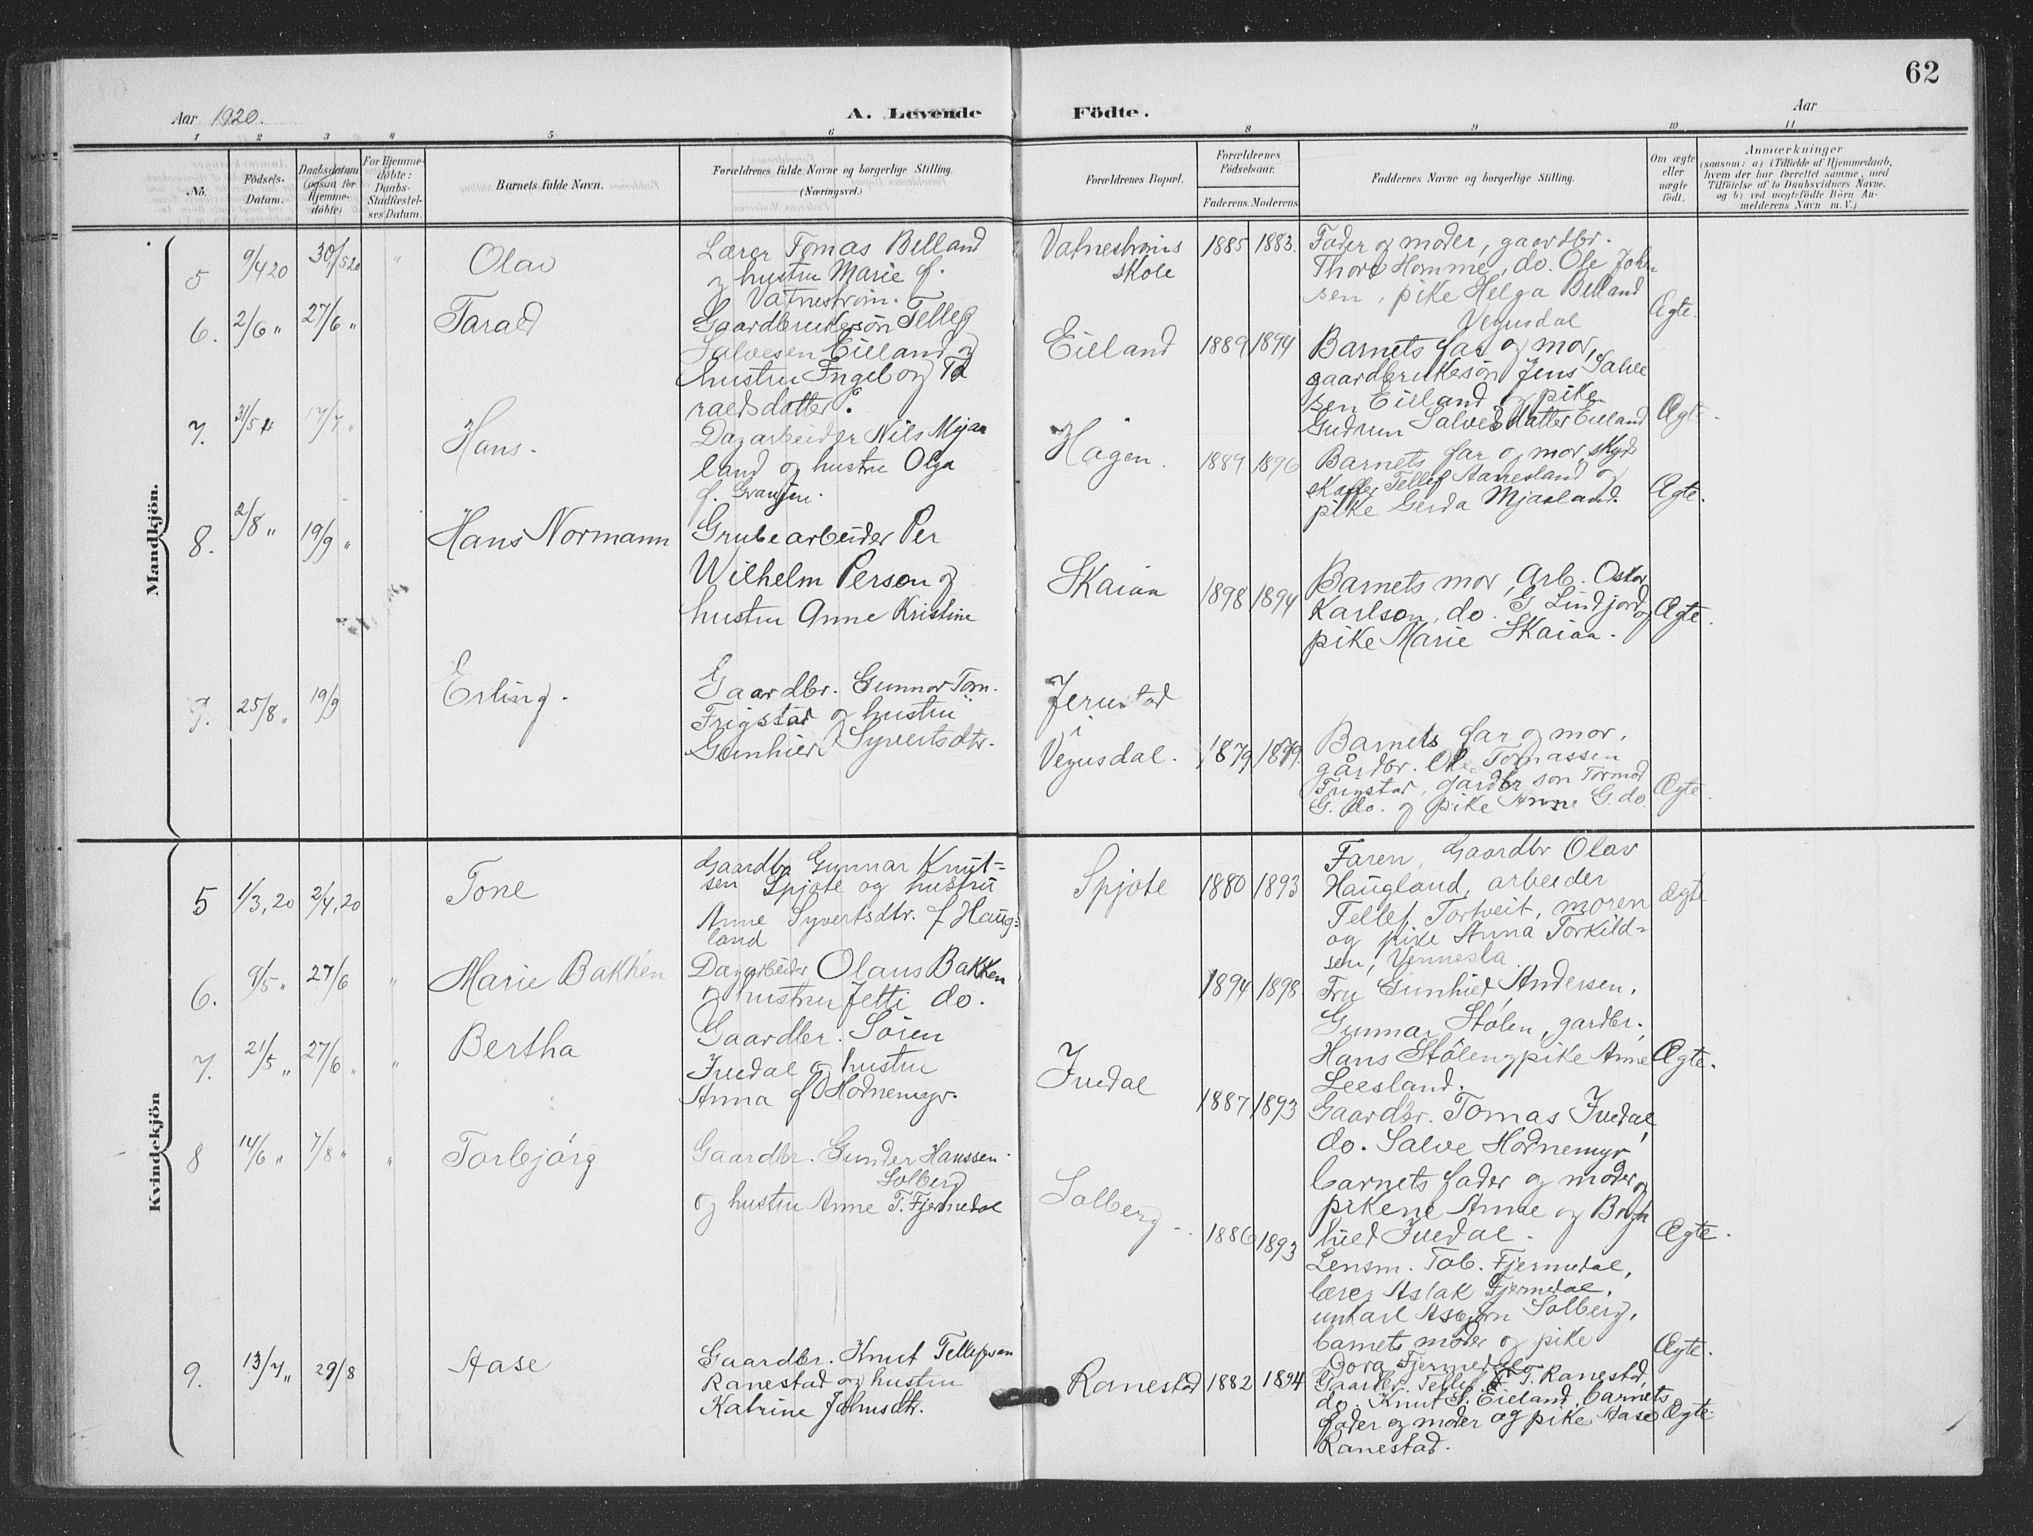 62
Aar 1920.
A. Levende Födte.
Aar
1 2 3 4 5 6 8 9 10 11
No.
Födsels-Datum.
Daabsdatum (ogsaa for Hjemme-döbte)
For Hjemme-döbte: Daabs-Stadfæstel-ses Datum.
Barnets fulde Navn.
Forældrenes fulde Navne og borgerlige Stilling. (Næringsvei.)
Forældrenes Bopæl.
Forældrenes Födselsaar.
Faderens. Moderens.
Faddernes Navne og borgerlige Stilling.
Om ægte eller uægte födt.
Anmærkninger
(saasom: a) i Tilfælde af Hjemmedaab,
hvem der har forrettet samme, med
Tilföielse af to Daabsvidners Navne.
og b) ved uægtefödte Börn An-
melderens Navn m. V.)
Mandkjön.
5 9/4 20 30/5 20 " Olav
Lærer Tomas Belland
og hustru Marie f.
Vatneström.
Vatneströms
skole
1885 1883.
Fader og moder, gaardbr.
Thore Homme, do. Ole John
sen, pike Helga Belland
Vegusdal
Ægte.
6. 2/6 " 27/6 " Tarald
Gaardbrukersön Tellef
Salvesen Eieland og
hustru Ingeborg Ta
raldsdatter.
Eieland 1889 1894
Barnets far og mor,
gaardbrukersön Jens Salve
sen Eieland og pike
Gudrun Salvesdatter Eieland
Ægte.
7. 31/5 " 17/7 " Hans.
Dagarbeider Nils Mjaa
land og hustru Olga
f.
Hagen. 1889 1896
Barnets far og mor, skyds
skaffer Tellef Aanesland og
pike Gerda Mjaaland.
Ægte.
8. 2/8 " 19/9 " Hans Normann
Grubearbeider Per
Wilhelm Person og
hustru Anne Kristine
Skaiaa 1898 1894
Barnets mor, Arb. Oskar
Karlson, do. G. Lindjord og
pike Marie Skaiaa.
Ægte.
9. 25/8 " 19/9 Erling.
Gaardbr. Gunnar Tom.
Frigstad og hustru
Gunhild Syvertsdtr.
Jerustad
i
Vegusdal. 1879 1879.
Barnets far og mor,
gårdbr. Ole Tomassen
Frigstad, gardbr son Tormod
G. do. og pike Anne G. do
Ægte.
Kvindekjön
5 1/3, 20 2/4, 20 Tone
Gaardbr. Gunnar Knut-
sen Spjote og hustru
Anne Syvertsdtr. f. Haug-
land
Spjote 1880 1893
Faren, Gaardbr Olav
Haugland, arbeider
Tellef Tortveit, moren
og pike Anna Torkild-
sen, Vennesla
ægte
6. 9/5 " 27/6 " Marie Bakken
Dagarbeider Olaus Bakken
og hustru Jetti do.
1894 1898
Fru Gunhild Andersen,
Gunnar Stölen, gardbr.
Hans Stölen og pike Anne
Leesland.
Ægte.
7. 21/5 " 27/6 " " Bertha
Gaardbr. Sören
Ivedal og hustru
Anna f. Hodnemyr.
Ivedal 1887 1893
Gaardbr. Tomas Ivedal,
do. Salve Hodnemyr
barnets fader og moder og
pikene Anne og Borg
hild Ivedal.
Ægte.
8 14/6 " 7/8 " " Torbjörg
Gaardbr. Gunder Hanssen
Solberg
og hustru Anne T. Fjermedal
Solberg. 1886 1893
Lensm. Tob. Fjermedal,
lærer Aslak Fjermedal,
unkarl Asbjörn Solberg,
barnets moder og pike
Dora Fjermedal
Ægte.
9. 13/7 " 29/8 Aase
Gaardbr. Knut Tellefsen
Ranestad og hustru
Katrine Johnsdtr.
Ranestad 1882 1894
Gaardbr. Tellef T. Ranestad,
do. Knut S. Eieland, barnets
fader og moder og pike Aase
Ranestad.
Ægte.